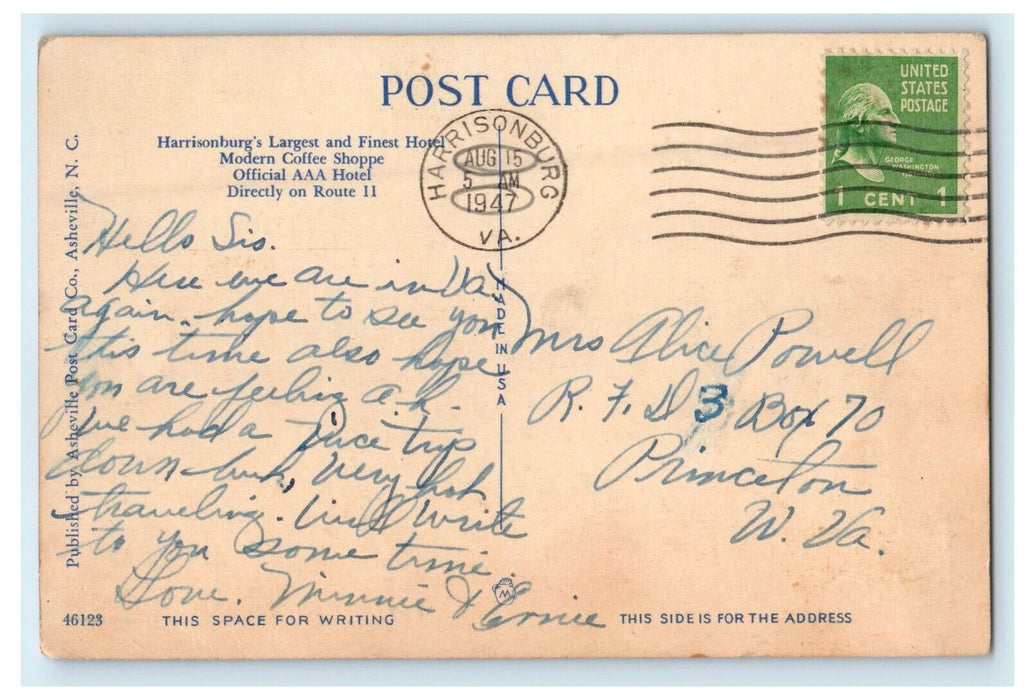 POST CARD
Harrisonburg's Largest and Finest Hotel
Modern Coffee Shoppe
Official AAA Hotel
Directly on Route 11
HARRISONBURG
AUG 15
5 AM
1947
VA.
UNITED
STATES
POSTAGE
GEORGE
WASHINGTON
1 CENT 1
Published by Asheville Post Card Co., Asheville, N. C.
Hello Sis.
Here we are in Va.
again. hope to see you
this time also hope
you are feeling o.k.
We had a nice trip
down but, very hot
traveling. Will write
to you some time.
Love. Minnie & Ernie
MADE IN USA
Mrs Alice Powell
R. F. D 3 Box 70
Princeton
W. Va.
M
46123
THIS SPACE FOR WRITING
THIS SIDE IS FOR THE ADDRESS